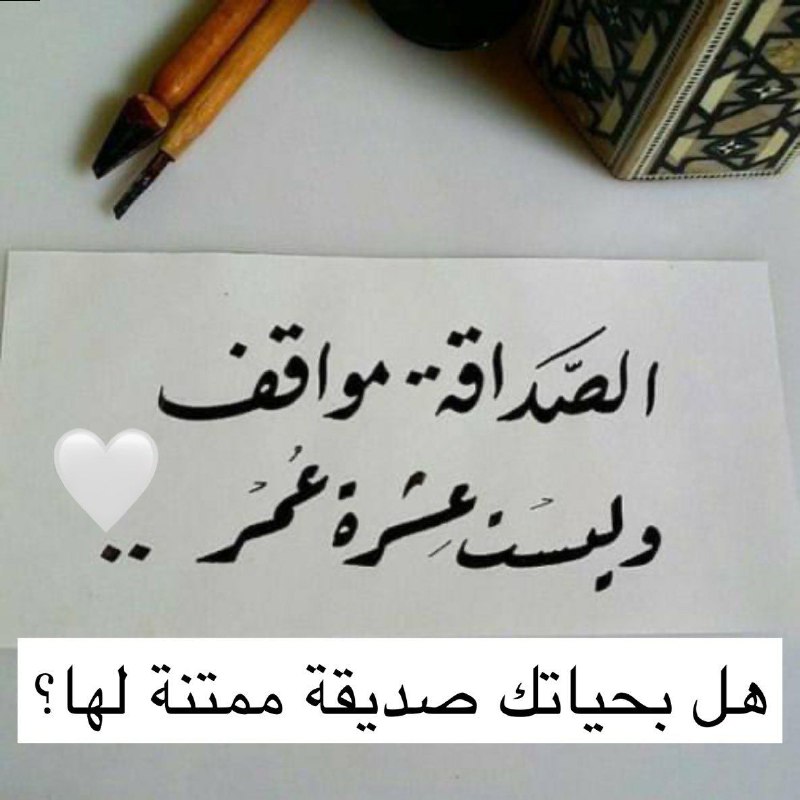 الصَّداقة.. مواقف
وليسْت عِشرة عُمْر ..
هل بحياتك صديقة ممتنة لها؟